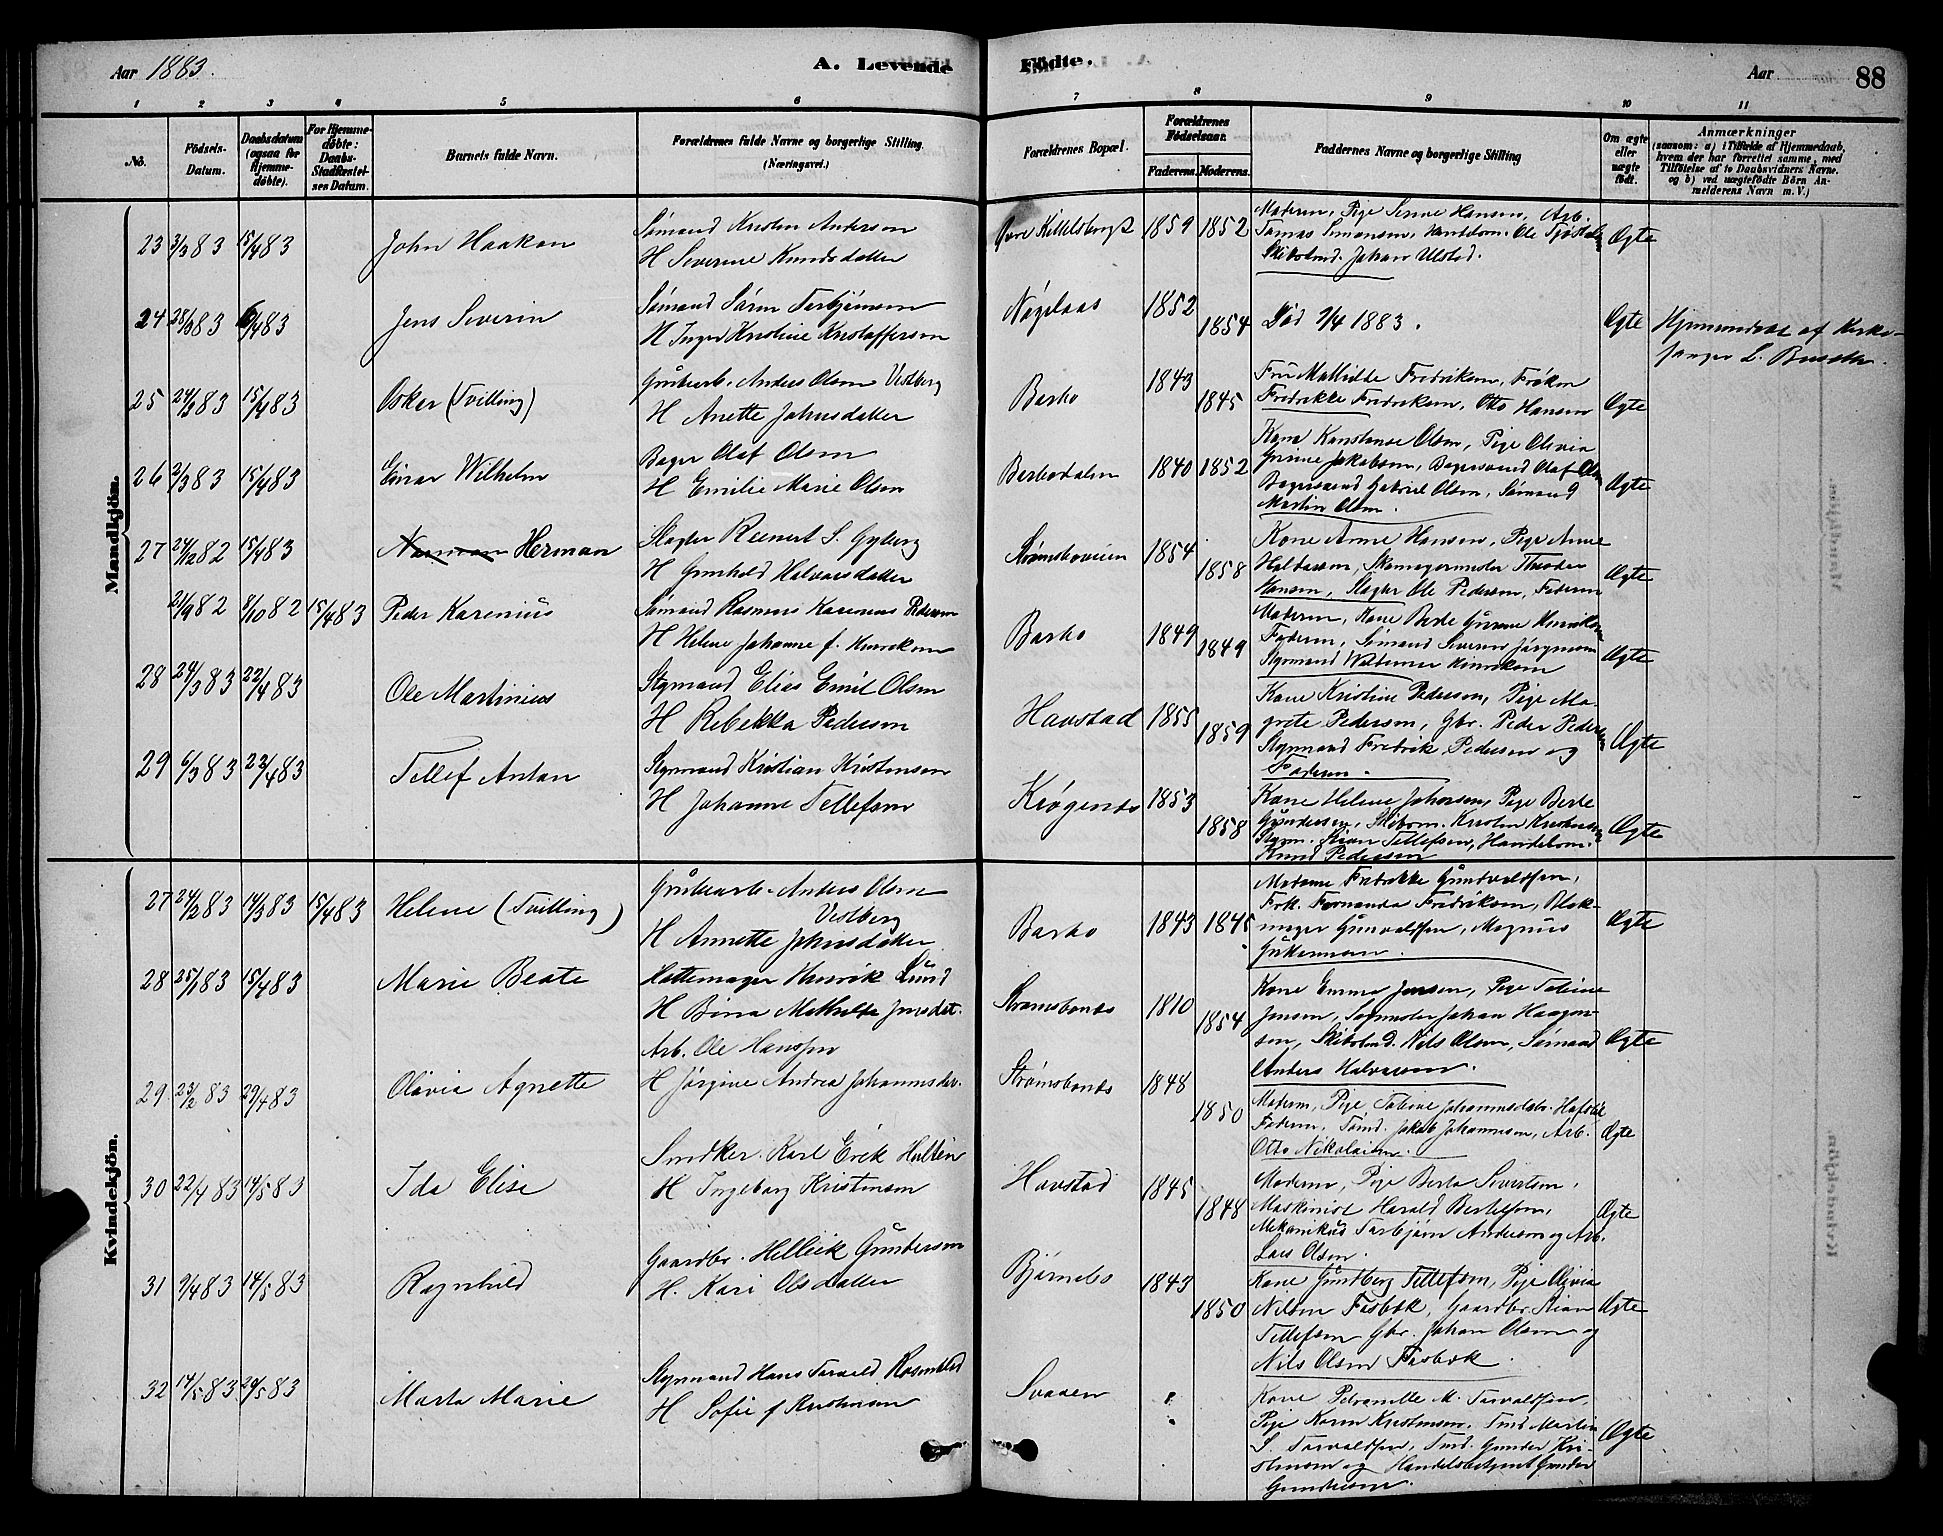 Aar 1883.
A. Levende Födte.
Aar 88
1 2 3 4 5 6 7 8 9 10 11
No.
Födsels-Datum.
Daabsdatum (ogsaa for Hjemme-döbte).
For Hjemme-döbte: Daabs-Stadfæstel-ses Datum.
Barnets fulde Navn.
Forældrenes fulde Navne og borgerlige Stilling. (Næringsvei.)
Forældrenes Bopæl.
Forældrenes Födselsaar.
Faderens. Moderens.
Faddernes Navne og borgerlige Stilling
Om ægte eller uægte födt.
Anmærkninger
(saasom: a) i Tilfælde af Hjemmedaab,
hvem der har forrettet samme, med
Tilföielse af to Daabsvidners Navne,
og b) ved uægtefödte Börn An-
melderens Navn m. V.)
Mandkjön.
23 2/3 83 15/4 83 John Haakon
Sømand Kristen Anderson
H Severine Knudsdatter
1859 1852
Moderen, Pige Hansen, Arb.
Tomas Simonsen, Ole
Skibstmd. Johan Ulstad.
Ægte
24 28/3 83 6/4 83 Jens Severin
Sømand Søren Terkjønsen
H Inger Kristine Kristoffersen
Nøgelaas 1852 1854
Død 7/4 1883.
Ægte
Hjemmedøbt af Kirke-
sanger L.
25 24/2 83 15/4 83 Oskar (Tvilling)
Anders Olsen Vestberg
H Anette Johnsdatter
Barbo 1843 1845
Fru Mathilde Fredriksen, Frøken
Fredrikke Fredriksen, Otto Hansen
Ægte
26 2/3 83 15/4 83 Einar Wilhelm
Bager Olaf Olsen
H Emilie Marie Olsen
Barbodalen 1840 1852
Kone Konstanse Olsen, Pige Olivia
Jakobsen, Bagersvend Olaf Olsen
Bagersvend Gabriel Olsen, Sømand
Martin Olsen.
Ægte
27 24/12 82 15/4 83 Herman
Slagter Reinert S. Gyberg
H Gunhild Halvorsdatter
Strømsboveien 1854 1858
Kone Anne Hansen, Pige Anne
Haldorsen, Skomagermester Theodor
Hansen, Slagter Ole Pederson, Faderen
Ægte
21/9 82 8/10 82 15/4 83 Peder Karenius
Sømand Rasmus Karenius Pederson
H Helene Johanne f. Henriksen
Barbo 1849 1849
Moderen, Kone Berte Henriksen
Faderen, Sømand Severin Jørgensen
Styrmand Henriksen
Ægte
28 24/3 83 22/4 83 Ole Martinius
Styrmand Elias Emil Olsen
H Rebekka Pederson
Havstad 1855 1859
Kone Kristine Pederson, Pige Ma-
grete Pederson, Gbr. Peder Pedersen
Styrmand Fredrik Pederson og
Faderen.
Ægte
29 6/3 83 22/4 83 Tellef Anton
Styrmand Kristian Kristensen
H Johanne Tellefsen
Krøgenes 1853 1858
Kone Helene Johnsen, Pige Berte
Gundersen, Skibsm. Kristen Kristensen
Styrm. Stian Tellefsen, Handelsm.
Knud Pederson
Ægte
Kvindekjön.
27 24/2 83 14/3 83 15/4 83 Helene (Tvilling)
Anders Olsen
Vestberg
H Annette Johnsdatter
Barbo 1843 1845
Madame Fredrikke Gundvaldsen,
Frk. Fernanda Fredriksen, Blok-
mager Gunvaldsen, Magnus
Ægte
28 25/1 83 15/4 83 Marie Beate
Hattemager Henrik Lund
H Mathilde Jensdat.
Strømsbonæs 1810 1854
Kone Emma Jensen, Pige Tobine
Jensen, Johan Haagen-
sen, Skibstmd. Nils Olsen, Sømand
Anders Halvorsen.
Ægte
29 23/2 83 29/4 83 Olavia Agnette
Arb. Ole Hansen
H Jørgine Andrea Johannesdtr.
Strømsbonæs 1848 1850
Moderen, Pige Tobine Johannesdtr.
Faderen, Tømd. Jakob Johannesen, Arb.
Otto Nikolaisen.
Ægte
30 22/4 83 14/5 83 Ida Elise
Karl Erik Hultin
H Ingeborg Kristensen
Havstad 1845 1848
Moderen, Pige Berta Sivertsen,
Maskinist Harald Bertelsen,
Mekanikus Torbjørn Andersen og Arb.
Lars Olsen.
Ægte
31 9/4 83 14/5 83 Ragnhild
Gaardbr. Helleik Gundersen
H. Kari Olsdatter
Bjørnebo 1843 1850
Kone Gundborg Tellefsen, Pige Olivia
Nilsen Fosbæk, Gaardbr. Stian
Tellefsen Gbr. Johan Olsen og
Nils Olsen Fosbæk.
Ægte
32 14/5 83 29/5 83 Marta Marie
Styrmand Hans Torvald
H Sofie f Kristensen
Svaaen
Kone Petronille M. Torvaldsen,
Pige Karen Kristensen, Tmd Martin
S. Torvaldsen, Tmd. Gunder Kri-
stensen og Handelsbetjent Gunder
Gundersen.
Ægte